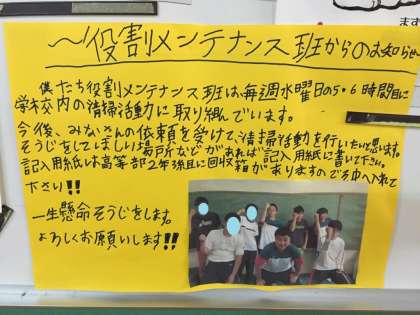 〜役割メンテナンス班からのお知らせ〜
僕たち役割メンテナンス班は、毎週水曜日の5・6時間目に
学校内の清掃活動に取り組んでいます。
今後、みなさんの依頼を受けて、清掃活動を行いたいと思います。
そうじをしてほしい場所などがあれば記入用紙に書いて下さい。
記入用紙は高等部2年
回収箱がありますので中へ入れて
下さい!!
一生懸命そうじをします。
よろしくお願いします!!